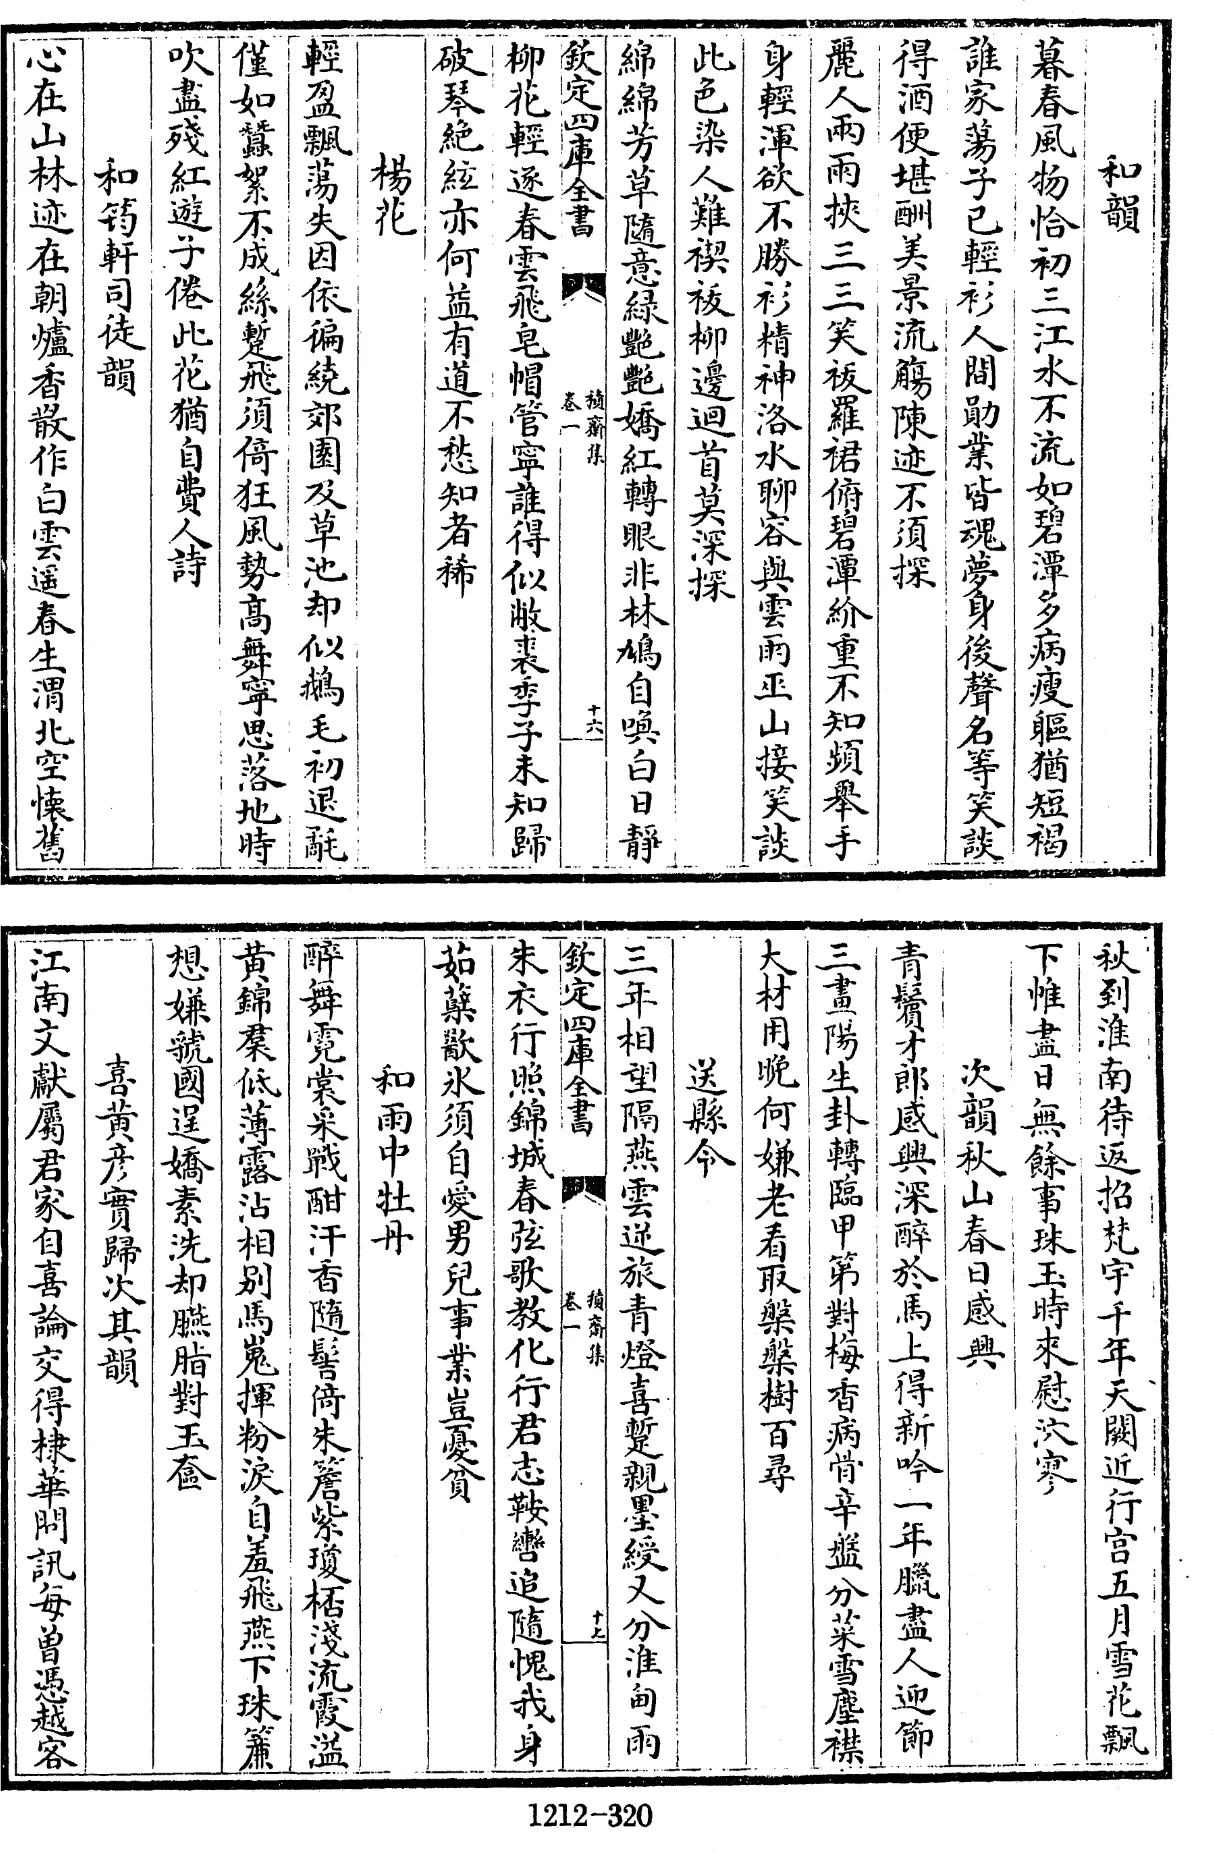 和韻
暮春風物恰初三江水不流如碧潭多病瘦軀猶短褐
誰家蕩子已輕衫人間勛業皆魂夢身後聲名等笑談
得酒便堪酬美景流觴陳迹不須探
麗人兩兩挾三三笑袚羅裙俯碧潭紒重不知頻舉手
身輕渾欲不勝衫精神洛水聊容與雲雨巫山接笑談
此色染人難禊袚柳邊迴首莫深探
綿綿芳草隨意緑艷艷嬌紅轉眼非林鳩自喚白日靜
欽定四庫全書
積齋集
卷一
十六
柳花輕逐春雲飛皂帽管寧誰得似敝裘季子未知歸
破琴絶絃亦何益有道不愁知者稀
楊花
輕盈飄蕩失因依徧繞郊園及草池却似鵝毛初退毻
僅如蠶絮不成絲蹔飛須倚狂風勢高舞寧思落地時
吹盡殘紅遊子倦此花猶自費人詩
和筠軒司徒韻
心在山林迹在朝爐香散作白雲遥春生渭北空懷舊
秋到淮南待返招梵宇千年天闕近行宫五月雪花飄
下帷盡日無餘事珠玉時來慰泬寥
次韻秋山春日感興
青鬢才郎感興深醉於馬上得新吟一年臘盡人迎節
三畫陽生卦轉臨甲第對梅香病骨辛盤分菜雪塵襟
大材用晚何嫌老看取槃槃樹百尋
送縣令
三年相望隔燕雲逆旅青燈喜蹔親墨綬又分淮甸雨
欽定四庫全書
積齋集
卷一
十七
朱衣行照錦城春弦歌教化行君志鞍轡追隨愧我身
茹蘗歠氷須自愛男兒事業豈憂貧
和雨中牡丹
醉舞霓裳采戰酣汗香隨髻倚朱簷紫瓊桮淺流霞溢
黄錦羣低薄露沾相别馬嵬揮粉淚自羞飛燕下珠簾
想嫌虢國逞嬌素洗却臙脂對玉奩
喜黄彦實歸次其韻
江南文獻屬君家自喜論交得棣華問訊每曾憑越客
1212-320